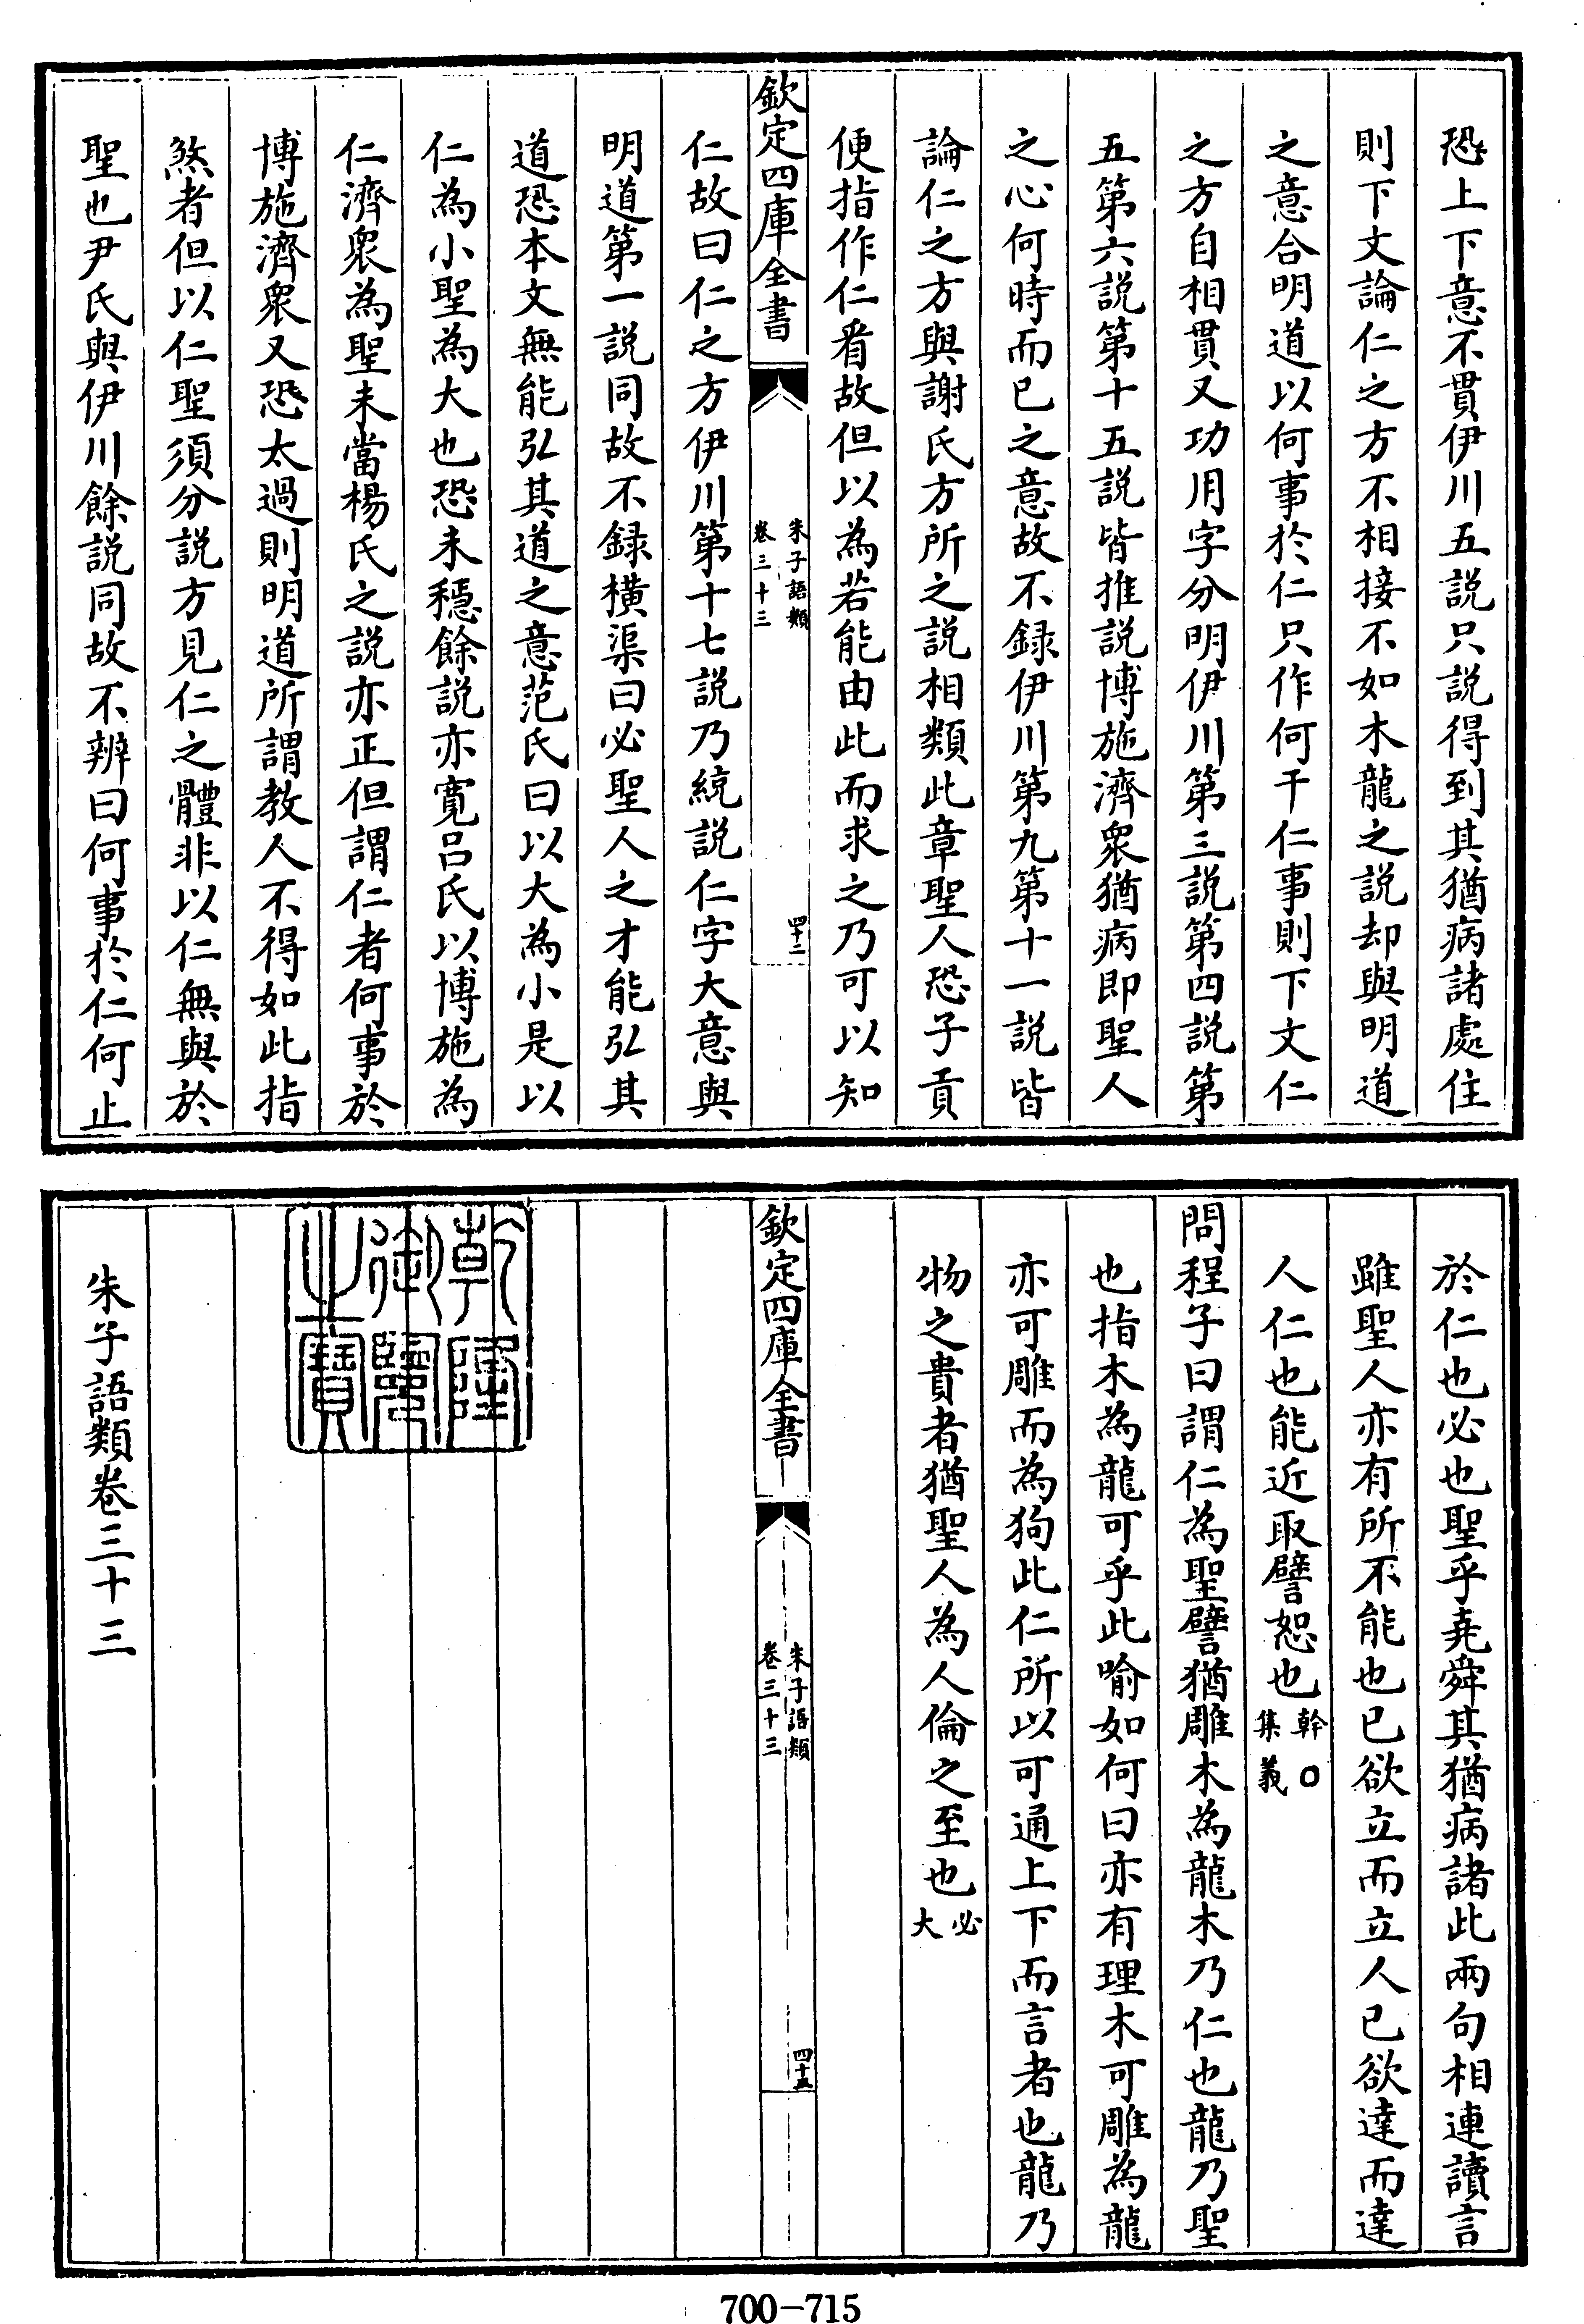 恐上下意不貫伊川五説只説得到其猶病諸處住
則下文論仁之方不相接不如木龍之説却與明道
之意合明道以何事於仁只作何干仁事則下文仁
之方自相貫又功用字分明伊川第三説第四説第
五第六説第十五説皆推説博施濟衆猶病即聖人
之心何時而已之意故不録伊川第九第十一説皆
論仁之方與謝氏方所之説相類此章聖人恐子貢
便指作仁看故但以為若能由此而求之乃可以知
欽定四庫全書
朱子語類
卷三十三
仁故曰仁之方伊川第十七説乃統説仁字大意與
明道第一説同故不録横渠曰必聖人之才能弘其
道恐本文無能弘其道之意范氏曰以大為小是以
仁為小聖為大也恐未穩餘説亦寛吕氏以博施為
仁濟衆為聖未當楊氏之説亦正但謂仁者何事於
博施濟衆又恐太過則明道所謂教人不得如此指
煞者但以仁聖須分説方見仁之體非以仁無與於
聖也尹氏與伊川餘説同故不辨曰何事於仁何止
於仁也必也聖乎堯舜其猶病諸此兩句相連讀言
雖聖人亦有所不能也已欲立而立人已欲達而達
人仁也能近取譬恕也幹○集義
問程子曰謂仁為聖譬猶雕木為龍木乃仁也龍乃聖
也指木為龍可乎此喻如何曰亦有理木可雕為龍
亦可雕而為狗此仁所以可通上下而言者也龍乃
物之貴者猶聖人為人倫之至也必大
欽定四庫全書
朱子語類
卷三十三
四十五
乾隆御覽之寶
朱子語類卷三十三
700-715